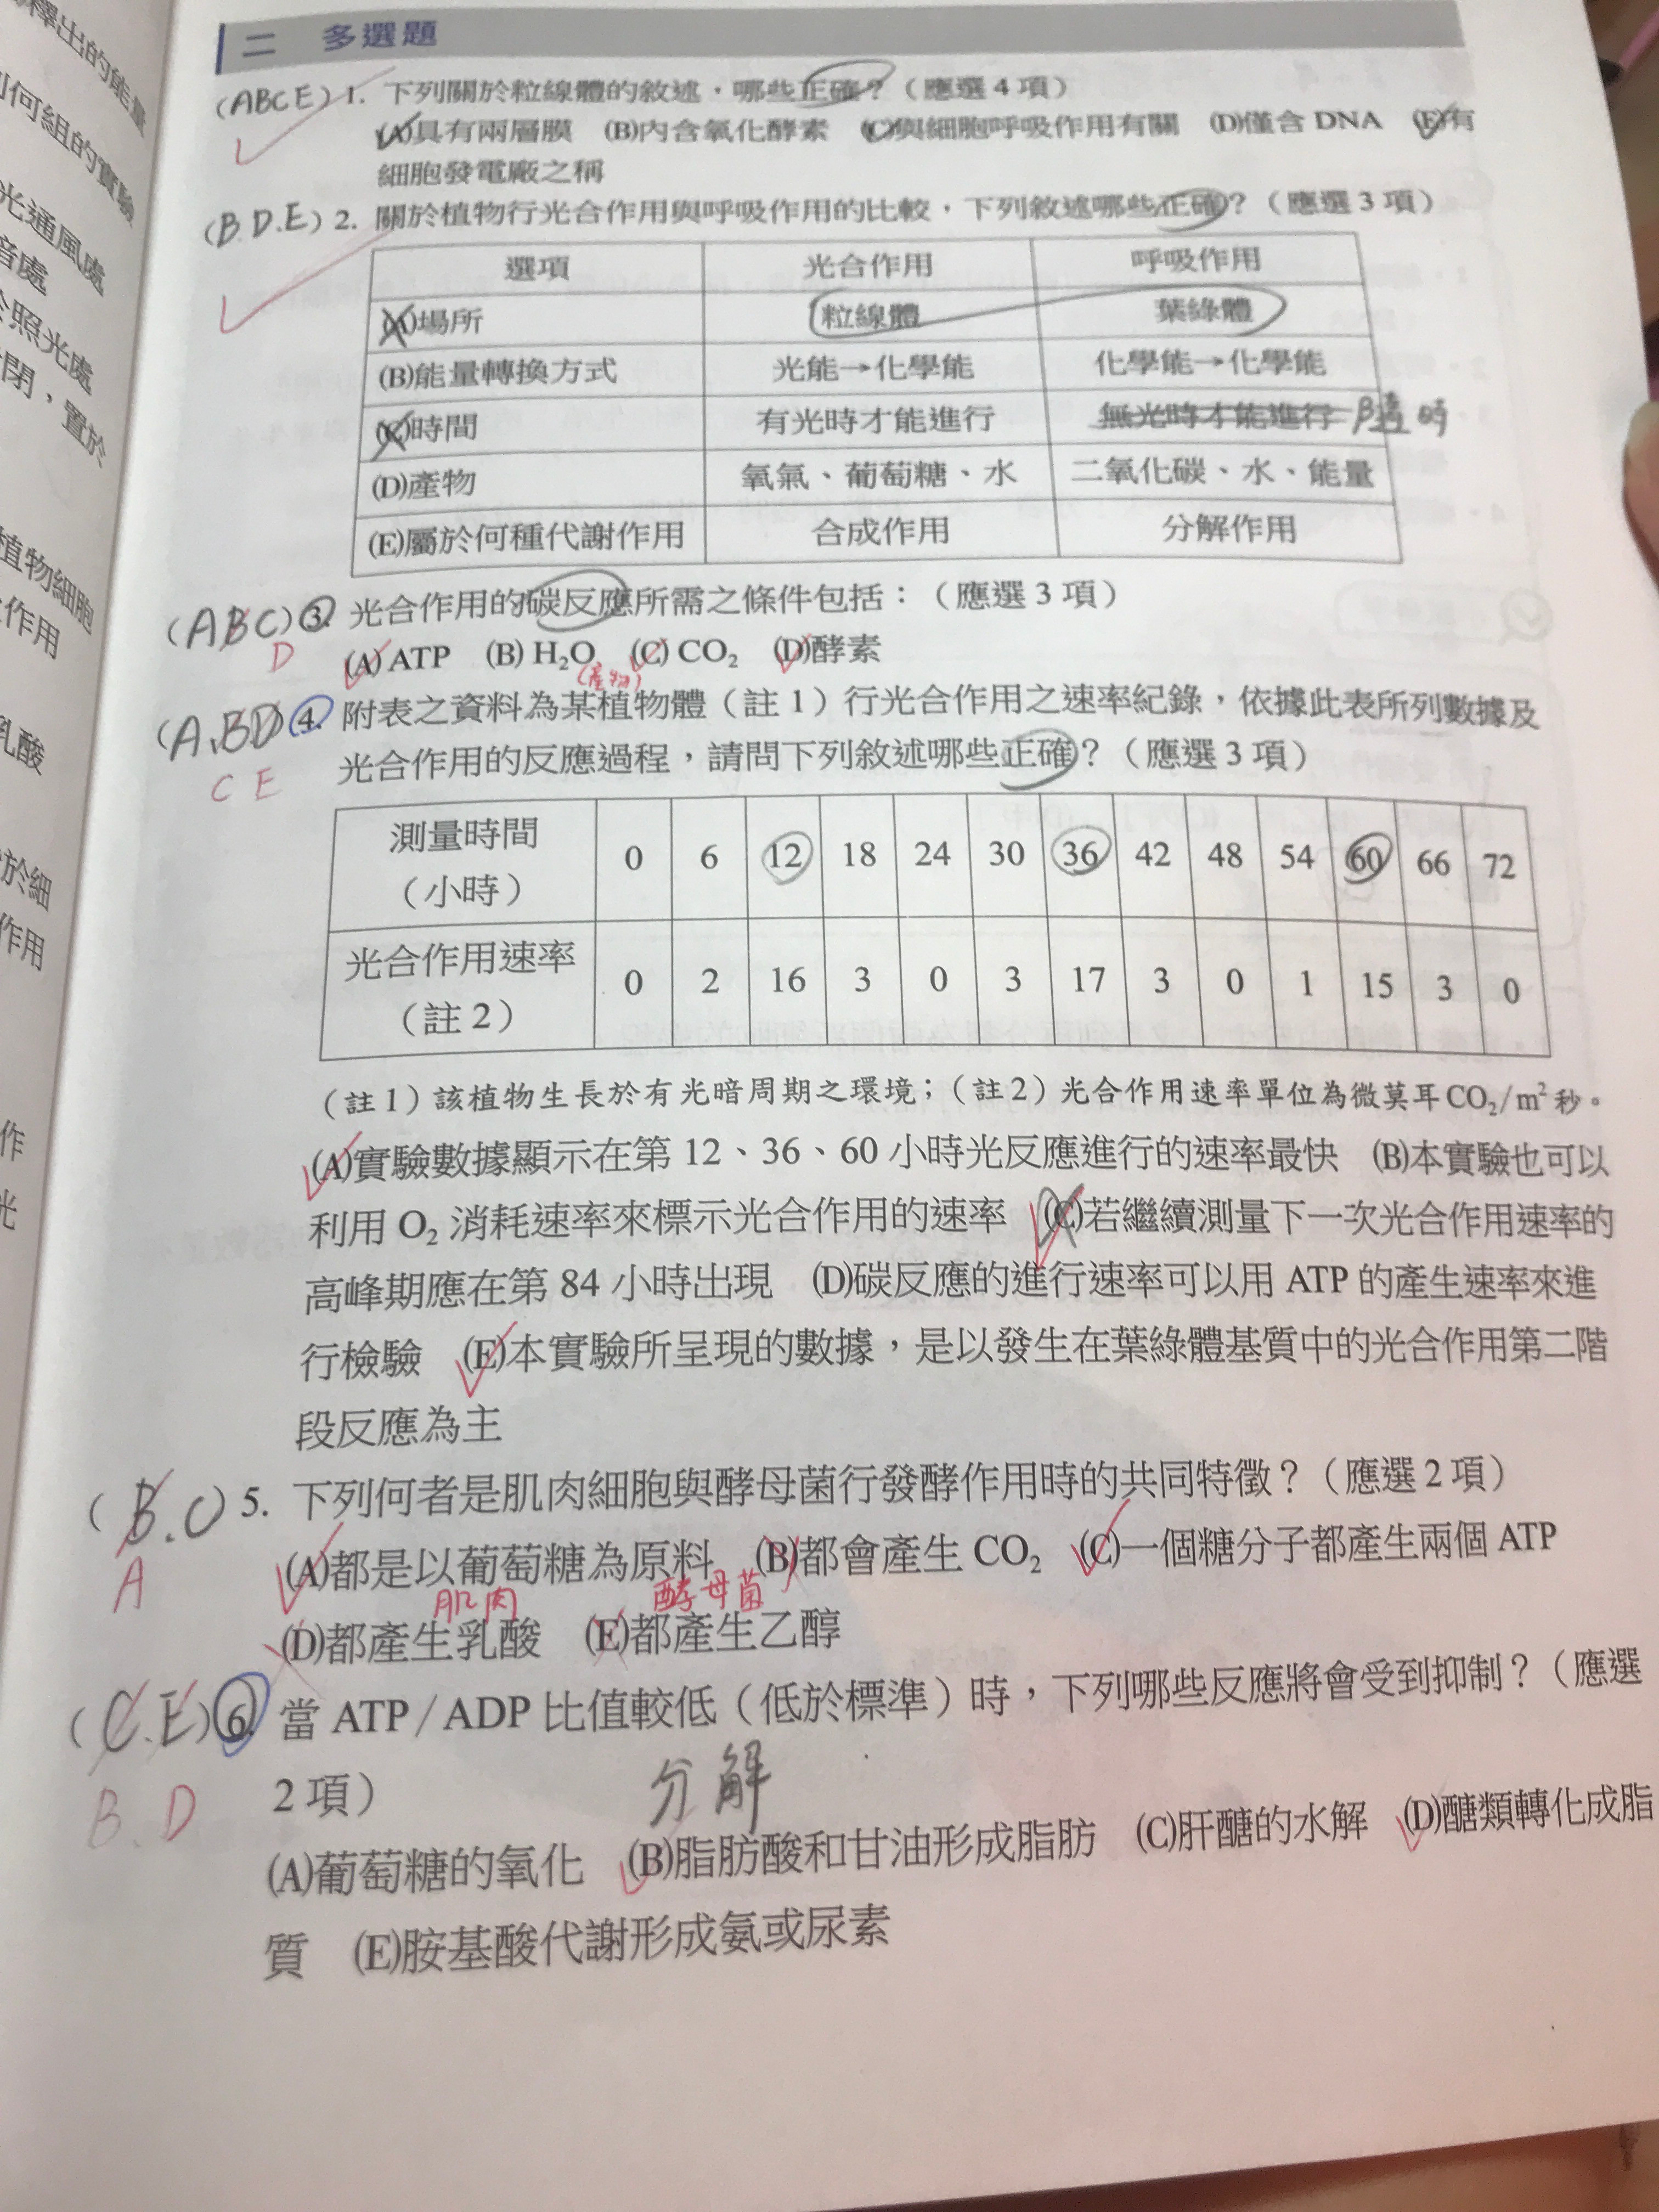 釋出的能量
何組的實驗
光通風處
音處
於照光處
閉，置於
植物細胞
作用
乳酸
於細
作用
作
光
二 多選題
(ABCE) 1. 下列關於粒線體的敘述，哪些正確？（應選 4 項）
(A)具有兩層膜 (B)內含氧化酵素 (C)與細胞呼吸作用有關 (D)僅含 DNA (E)有
細胞發電廠之稱
(B.D.E) 2. 關於植物行光合作用與呼吸作用的比較，下列敘述哪些正確？（應選 3 項）
選項 光合作用 呼吸作用
(A)場所 粒線體 葉綠體
(B)能量轉換方式 光能→化學能 化學能→化學能
(C)時間 有光時才能進行 無光時才能進行 隨時
(D)產物 氧氣、葡萄糖、水 二氧化碳、水、能量
(E)屬於何種代謝作用 合成作用 分解作用
(ABC) 3. 光合作用的碳反應所需之條件包括：（應選 3 項）
D (A) ATP (B) H₂O (C) CO₂ (D)酵素
(產物)
(A,BD) 4. 附表之資料為某植物體（註 1）行光合作用之速率紀錄，依據此表所列數據及
C E 光合作用的反應過程，請問下列敘述哪些正確？（應選 3 項）
測量時間
（小時） 0 6 12 18 24 30 36 42 48 54 60 66 72
光合作用速率
（註 2） 0 2 16 3 0 3 17 3 0 1 15 3 0
（註 1）該植物生長於有光暗周期之環境；（註 2）光合作用速率單位為微莫耳 CO₂/m² 秒。
(A)實驗數據顯示在第 12、36、60 小時光反應進行的速率最快 (B)本實驗也可以
利用 O₂ 消耗速率來標示光合作用的速率 (C)若繼續測量下一次光合作用速率的
高峰期應在第 84 小時出現 (D)碳反應的進行速率可以用 ATP 的產生速率來進
行檢驗 (E)本實驗所呈現的數據，是以發生在葉綠體基質中的光合作用第二階
段反應為主
(B.C) 5. 下列何者是肌肉細胞與酵母菌行發酵作用時的共同特徵？（應選 2 項）
A (A)都是以葡萄糖為原料 (B)都會產生 CO₂ (C)一個糖分子都產生兩個 ATP
肌肉 酵母菌
(D)都產生乳酸 (E)都產生乙醇
(C.E) 6. 當 ATP / ADP 比值較低（低於標準）時，下列哪些反應將會受到抑制？（應選
B.D 2 項） 分解
(A)葡萄糖的氧化 (B)脂肪酸和甘油形成脂肪 (C)肝醣的水解 (D)醣類轉化成脂
質 (E)胺基酸代謝形成氨或尿素